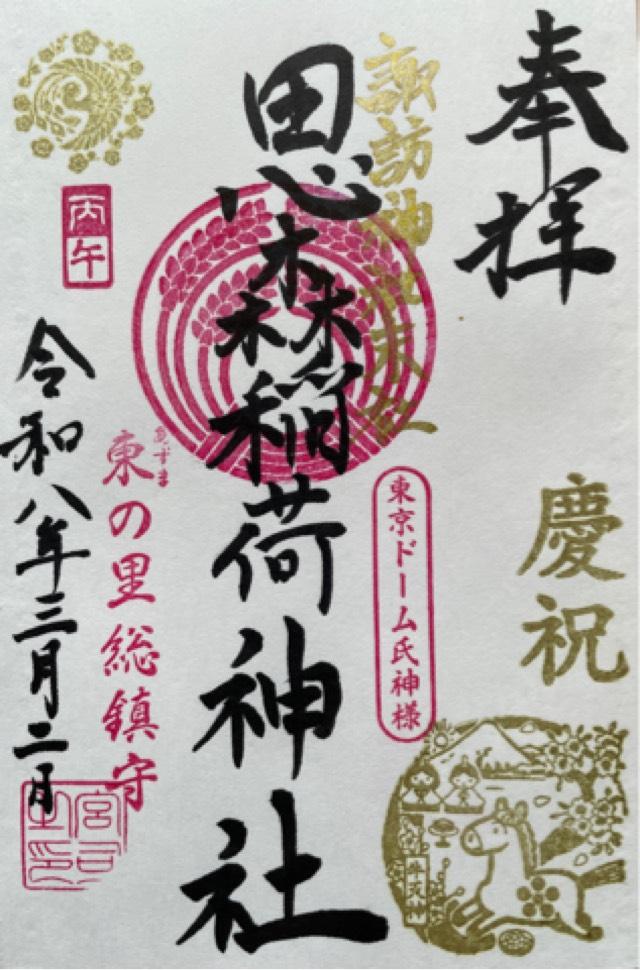 奉拝
慶祝
諏訪神社末社
東京ドーム氏神様
思森稲荷神社
あずま
東の里総鎮守
丙午
令和八年三月二日
宮司之印
牛天神